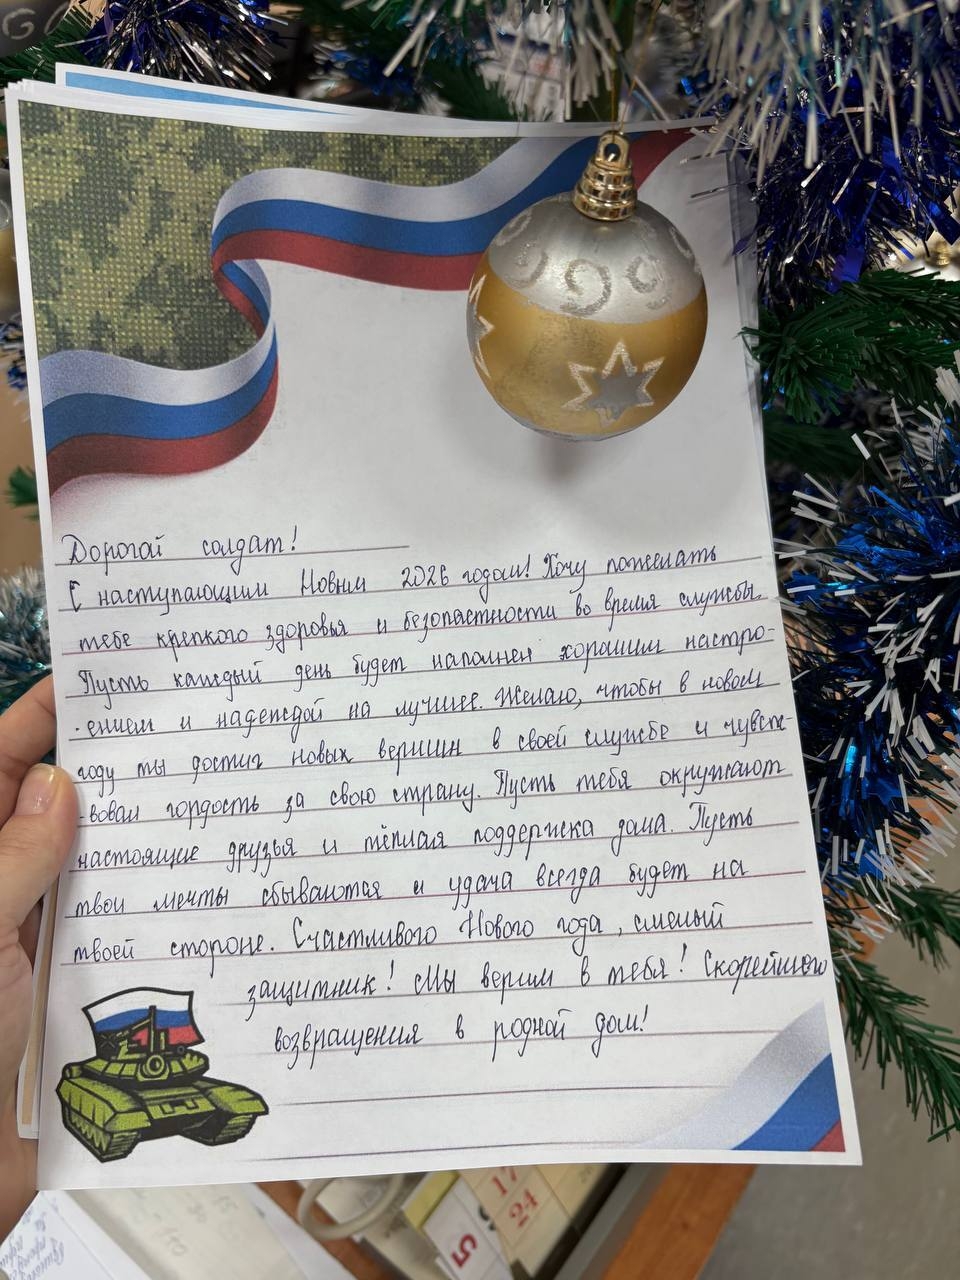 Дорогой солдат!
С наступающим Новым 2026 годом! Хочу пожелать
тебе крепкого здоровья и безопастности во время службы.
Пусть каждый день будет наполнен хорошим настро-
-ением и надеждой на лучшее. Желаю, чтобы в новом
году ты достиг новых вершин в своей службе и чувст-
-вовал гордость за свою страну. Пусть тебя окружают
настоящие друзья и тёплая поддержка дома. Пусть
твои мечты сбываются и удача всегда будет на
твоей стороне. Счастливого Нового года, смелый
защитник! Мы верим в тебя! Скорейшего
возвращения в родной дом!
17
24
5